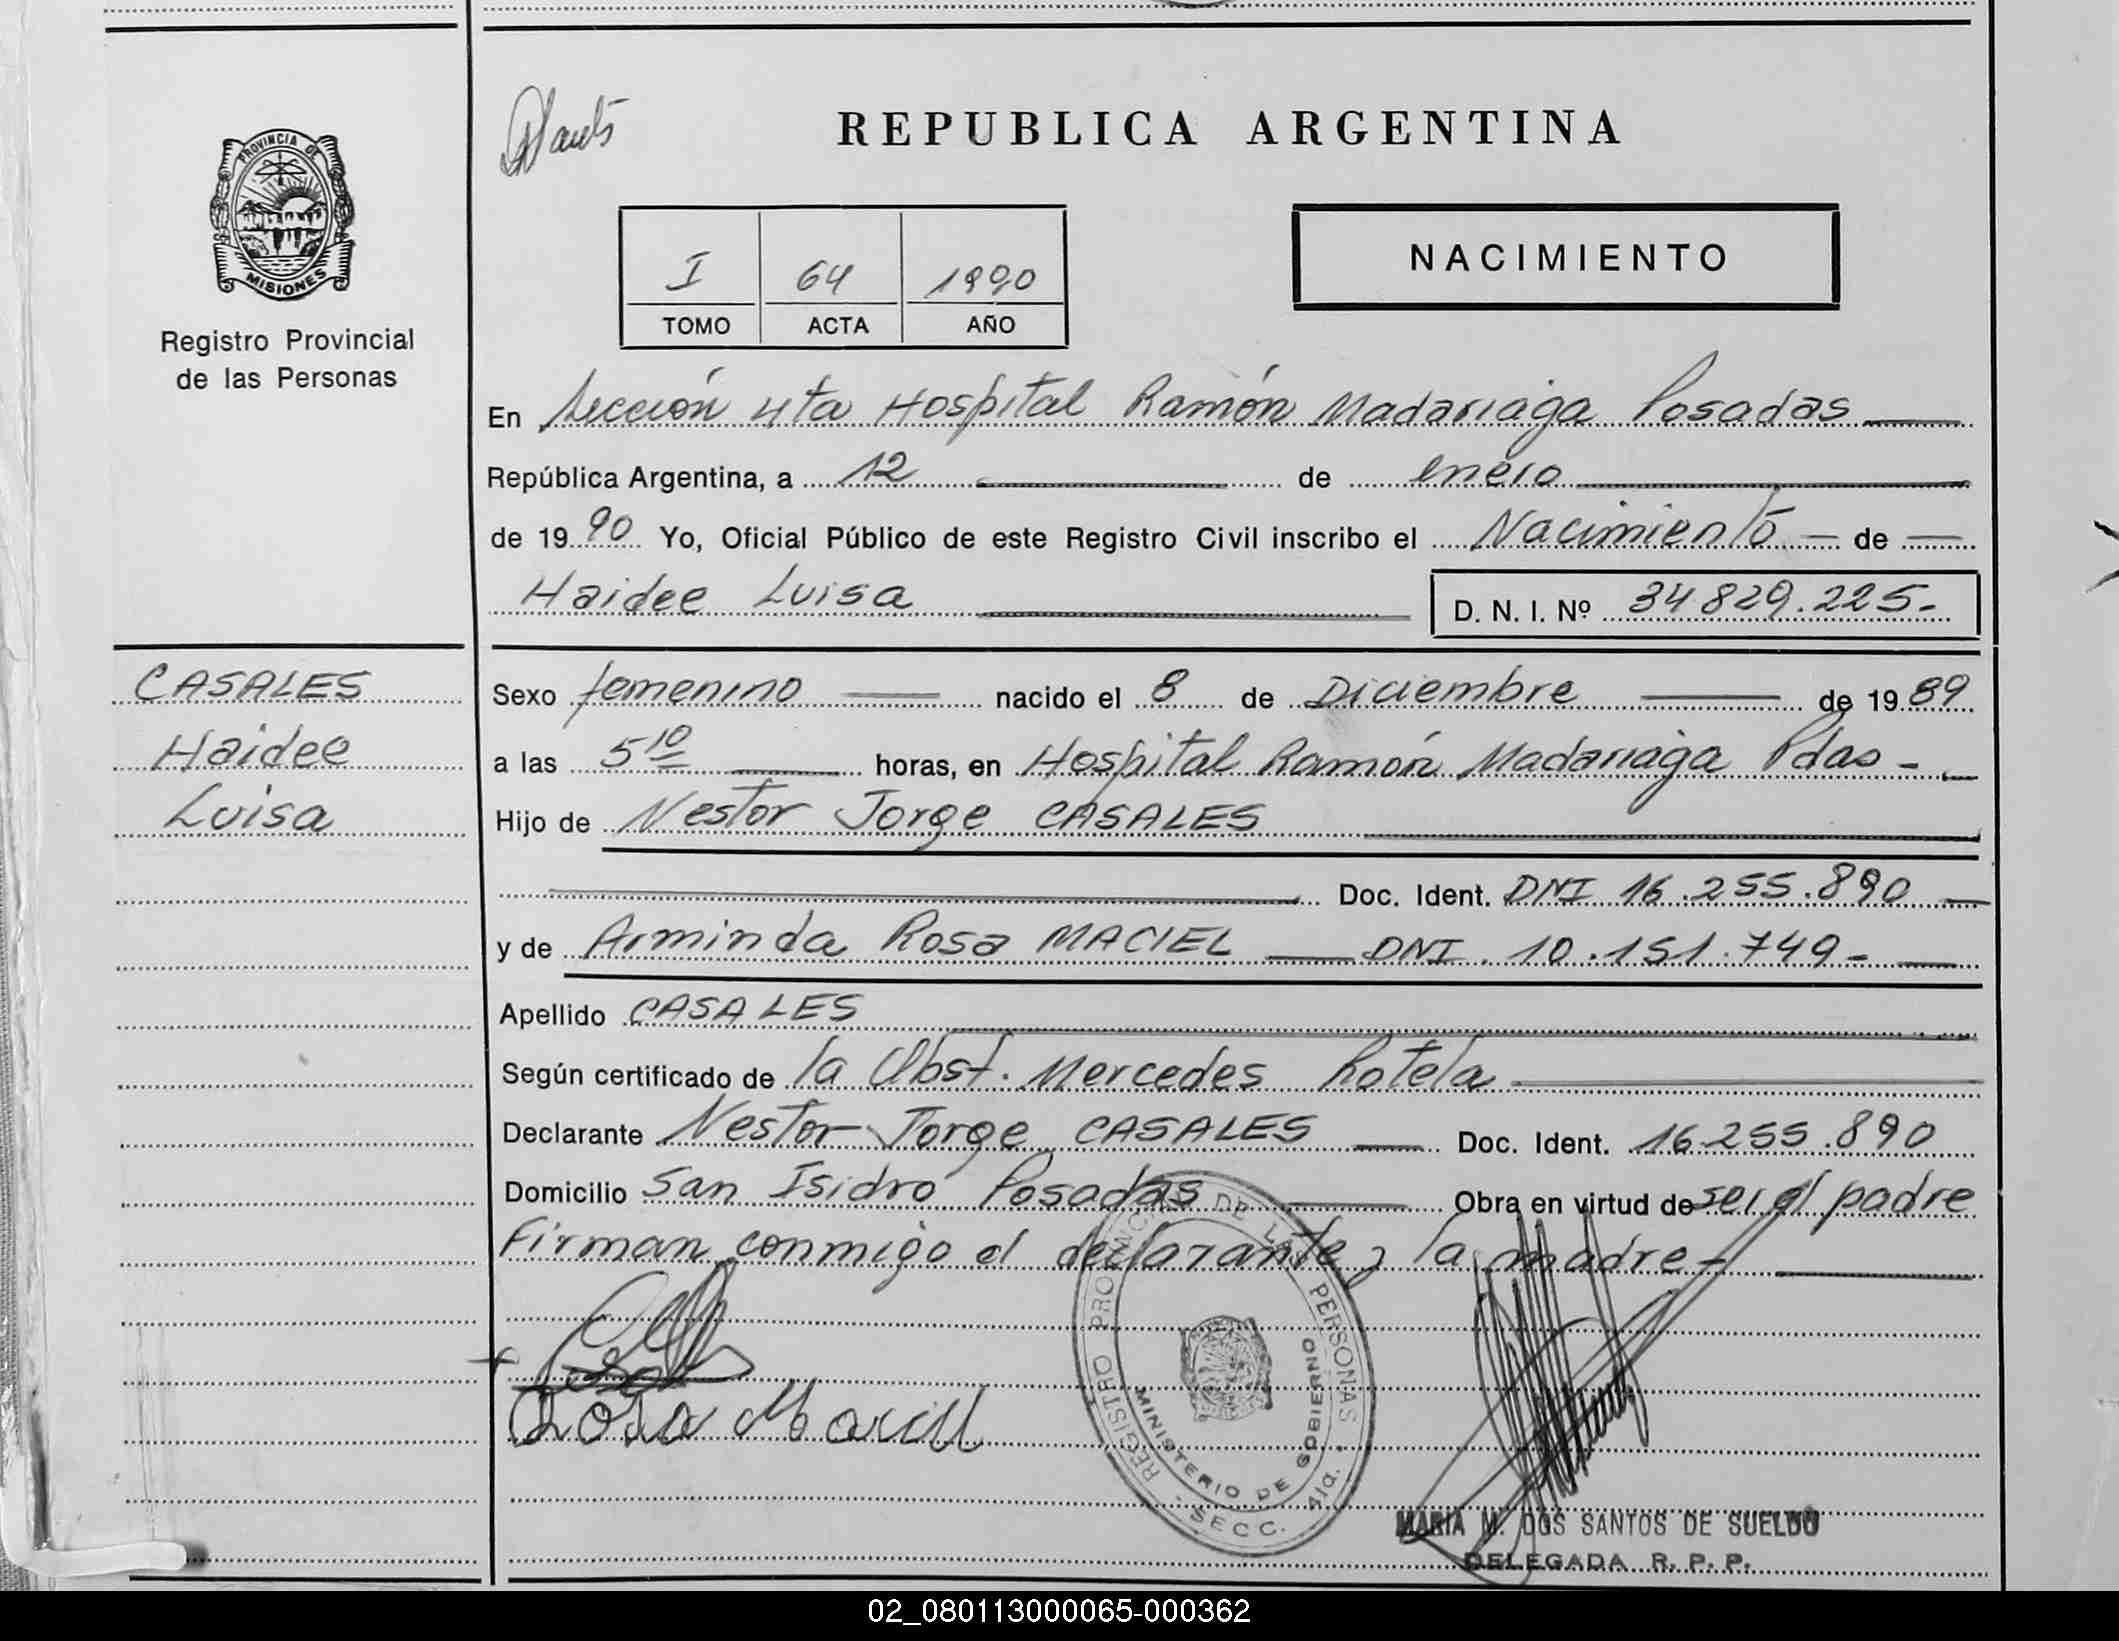 REPUBLICA ARGENTINA
PROVINCIA DE
MISIONES
Registro Provincial
de las Personas
I 64 1990
TOMO ACTA AÑO
NACIMIENTO
En Sección 4ta Hospital Ramón Madariaga Posadas
República Argentina, a 12 de enero
de 1990 Yo, Oficial Público de este Registro Civil inscribo el Nacimiento de
Haidee Luisa D. N. I. Nº 34829.225.-
CASALES
Haidee
Luisa
Sexo femenino nacido el 8 de Diciembre de 1989
a las 5 10 horas, en Hospital Ramón Madariaga Pdas -
Hijo de Nestor Jorge CASALES
Doc. Ident. DNI 16.255.890
y de Arminda Rosa MACIEL DNI. 10.151.749-
Apellido CASALES
Según certificado de la Obst. Mercedes Rotela
Declarante Nestor Jorge CASALES Doc. Ident. 16.255.890
Domicilio San Isidro Posadas Obra en virtud de ser el padre
Firman conmigo el declarante y la madre -
Rosa Maciel
REGISTRO PROVINCIAL DE LAS PERSONAS
MINISTERIO DE GOBIERNO
- SECC. 4ta.
MARIA M. DOS SANTOS DE SUELDO
DELEGADA R. P. P.
02_080113000065-000362